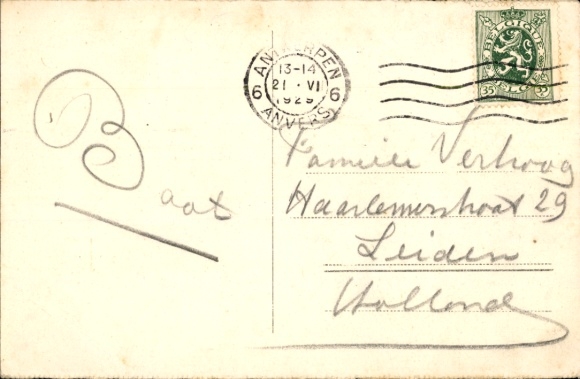 ANTWERPEN
13-14
21 · VI
1929
6 6
ANVERS
BELGIQUE
35 35
Baat
Familie Verhoog
Haarlemerstraat 29
Leiden
Holland